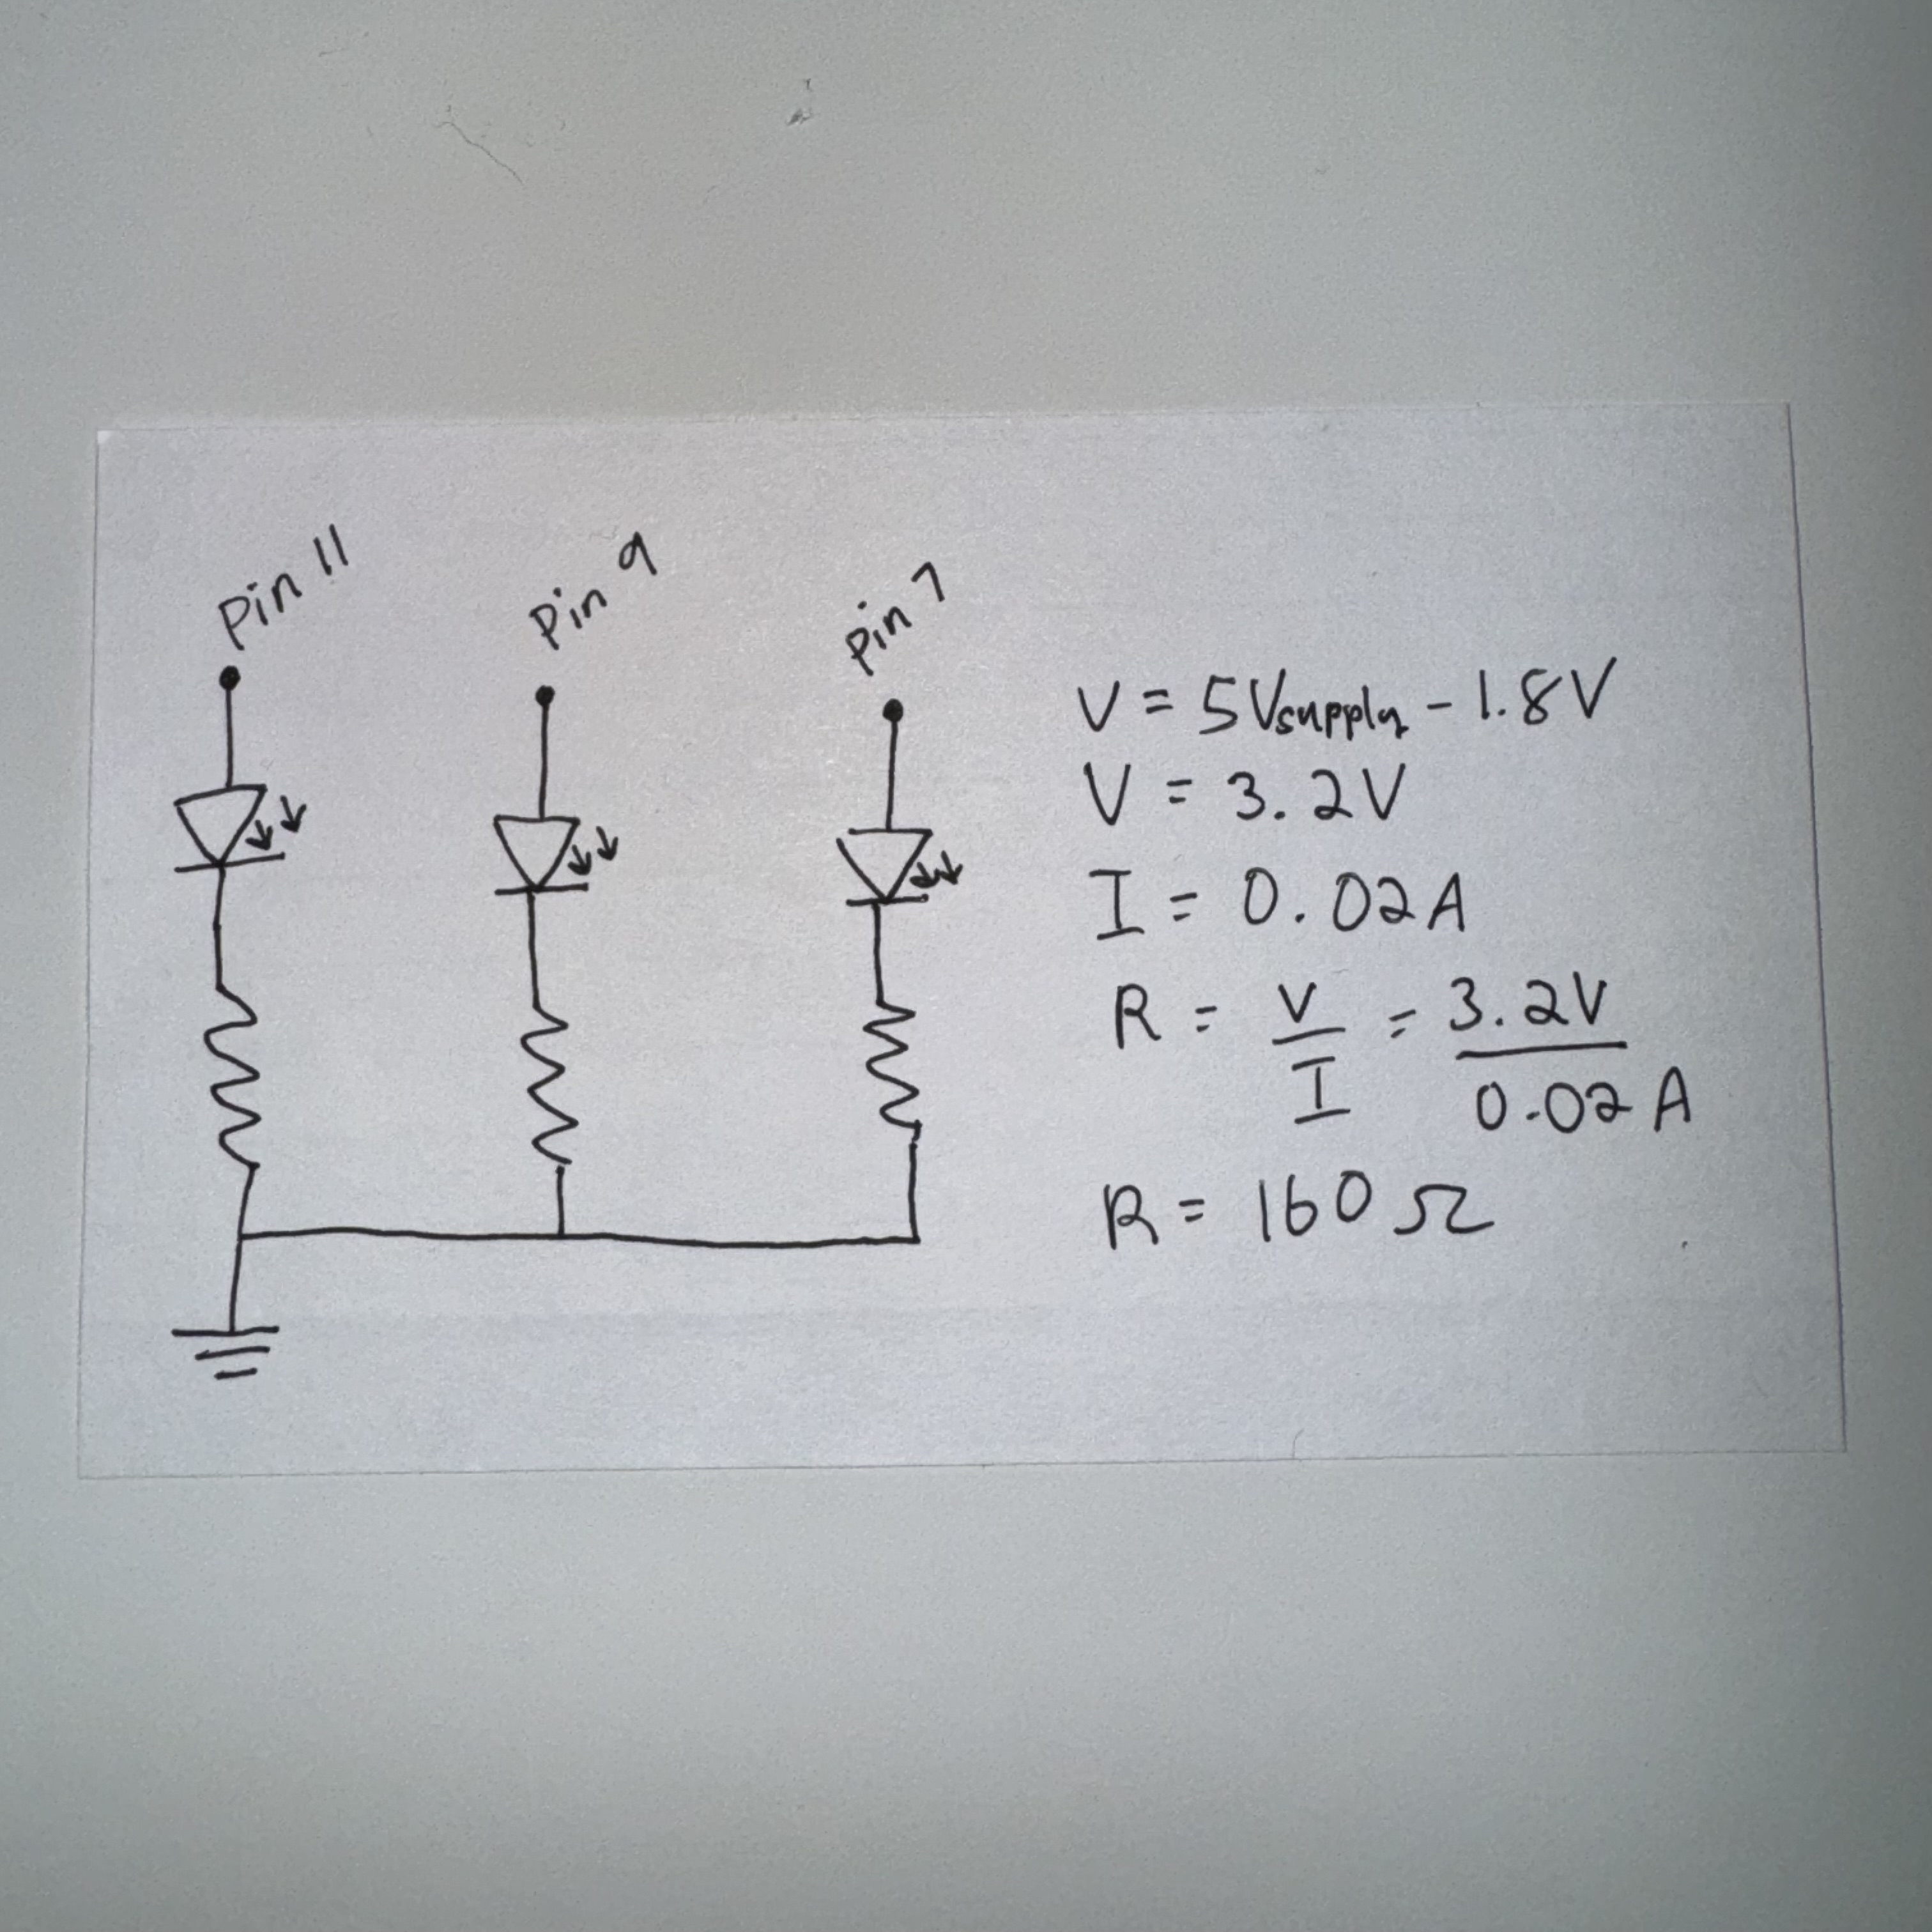 Pin 11
Pin 9
Pin 7
V = 5Vsupply - 1.8V
V = 3.2V
I = 0.02A
R = V/I = 3.2V/0.02A
R = 160 Ω